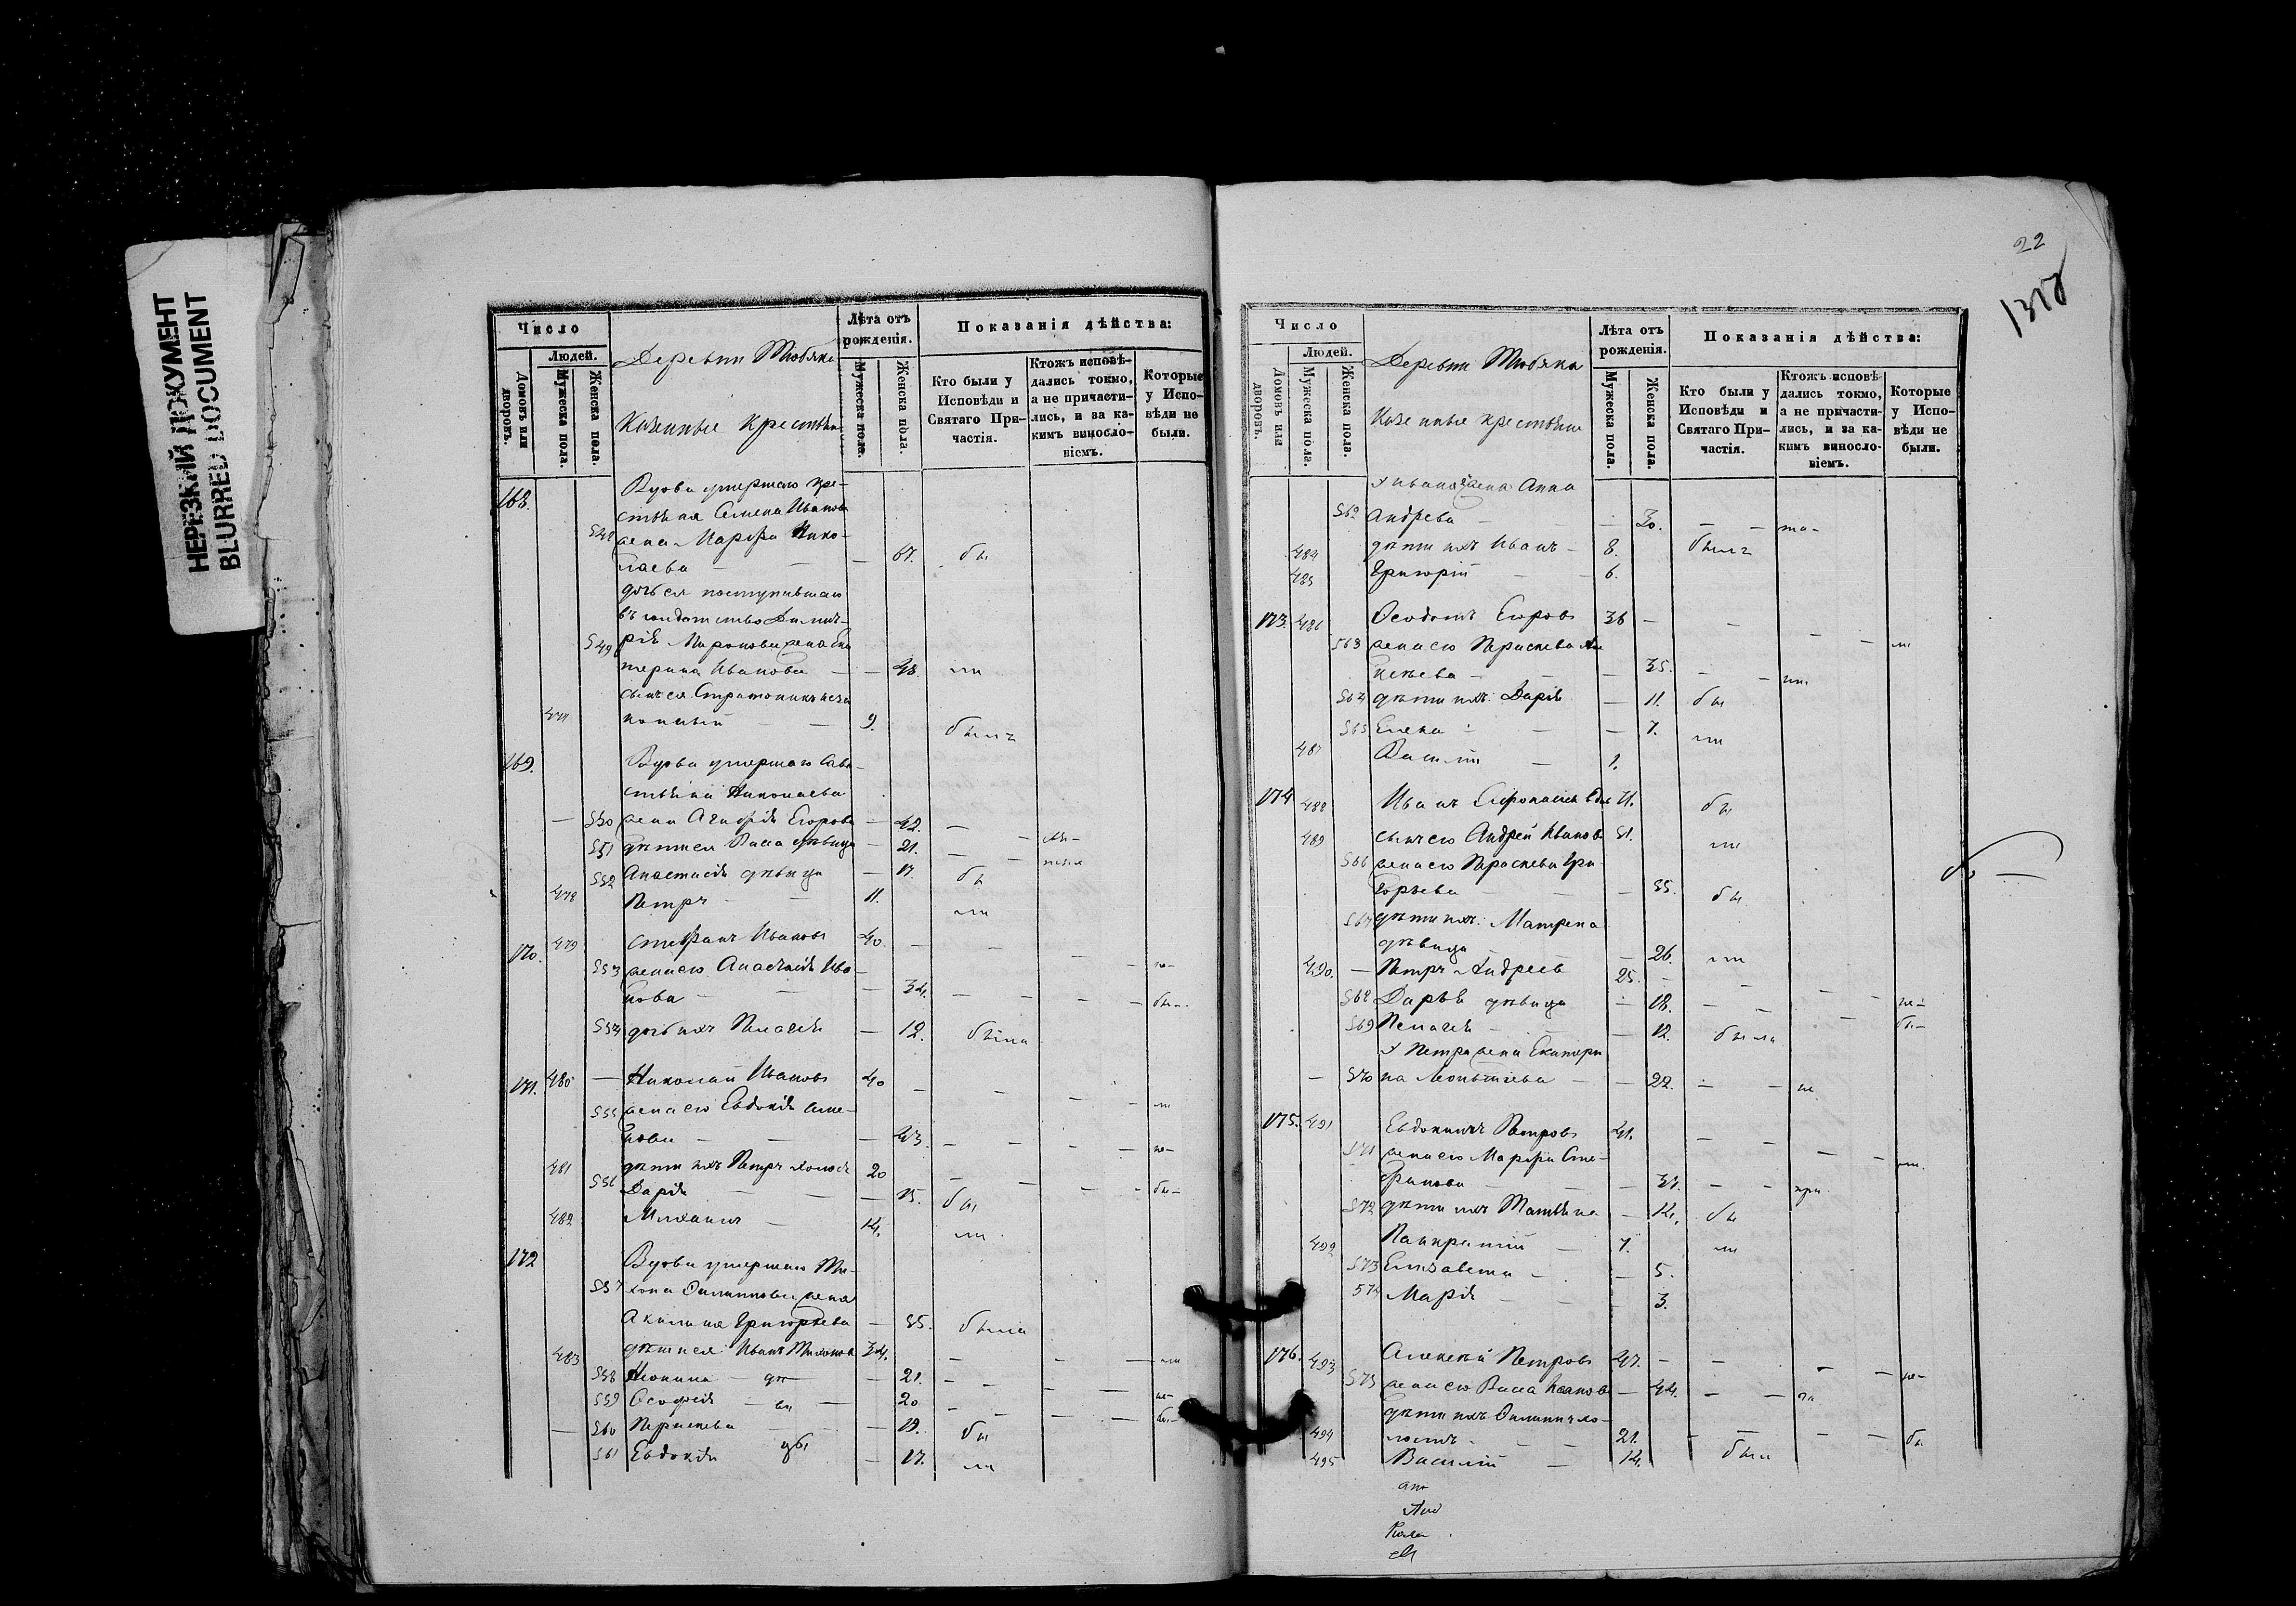 НЕРЕЗКИЙ ДОКУМЕНТ
BLURRED DOCUMENT
Число
Людей.
Домовъ или дворовъ.
Мужеска пола.
Женска пола.
Деревни Тюбяка
Казенные крестьяне
Лѣта отъ рожденія.
Мужеска пола.
Женска пола.
Показанія дѣйства:
Кто были у Исповѣди и Святаго При-
частія.
Ктожъ исповѣ-
дались токмо,
а не причасти-
лись, и за ка-
кимъ виносло-
віемъ.
Которые
у Испо-
вѣди не
были.
168. Вдова умершаго кре-
стьянина Семена Иванова
548 жена Марфа Нико-
лаева — — 67. бы
дочь ея поступившаго
въ солдатство Дмит-
549 рія Миронова жена Ека
терина Иванова — — 48. ли
сынъ ея Стратоникъ неза
477 конный — — 9. былъ
169. Вдова умершаго Сава
стьяна Николаева
550 жена Агафія Егорова — 42. —
551 дѣти ея Васса дѣвица — 21. —
552 Анастасія дѣвица — 17. бы
478 Петръ — — 11. ли
170. 479 Стефанъ Ивановъ 40. — —
553 жена его Анастасія Ива-
нова — — 34. — — — бы-
554 дочь ихъ Пелагія — 12. была
171. 480 — Николай Ивановъ 40 — — — ли
555 жена его Евдокія Семе-
нова — — 43. — — — не-
481 дѣти ихъ Петръ холостъ 20 — —
556 Дарія — — 15. бы
482 Михаилъ — 14. ли
172 Вдова умершаго Ти-
557 хона Филиппова жена
Акилина Григорьева — 55. была
483 дѣти ея Иванъ Тихоновъ 34. — — ли
558 Неонила — дѣ — 21. — —
559 Өеофія — ви — 20 — —
560 Параскева — 19. бы
561 Евдокія цы — 17. ли
22
Число
Людей.
Домовъ или дворовъ.
Мужеска пола.
Женска пола.
Деревни Тюбяка
Казенные крестьяне
Лѣта отъ рожденія.
Мужеска пола.
Женска пола.
Показанія дѣйства:
Кто были у
Исповѣди и
Святаго При-
частія.
Ктожъ исповѣ-
дались токмо,
а не причасти-
лись, и за ка-
кимъ виносло-
віемъ.
Которые
у Испо-
вѣди не
были.
У Ивана жена Анна
562 Андрева — — 30. — —
484 дѣти ихъ Иванъ — 8. былъ
485 Григорій — — 6.
173. 486 Өеодотъ Егоровъ 36 — — — —
563 жена его Параскева Але
ксѣева — — 35. — —
564 дѣти ихъ: Дарія — 11. бы
565 Елена — — 7. ли
487 Василій — 1.
174 488 Иванъ 71. бы
489 сынъ его Андрей Ивановъ 51. ли
566 жена его Параскева Гри
горьева — — 55. бы
567 дѣти ихъ: Матрена
дѣвица — — 26. ли
490. — Петръ Андреевъ 25. — — — —
568 Дарья дѣвица — 18. — — — бы-
569 Пелагія — — 12. была
У Петра жена Екатери
— 570 на Леонтиева — — 22. — — не
175. 491 Евдокимъ Петровъ 41. — — — —
571 жена его Марфа Сте-
фанова — — 37. — — при
572 дѣти ихъ Татьяна — 14. бы
492 Панкратій — 7. ли
573 Елизавета — — 5.
574 Марія — — 3.
176. 493 Алексѣй Петровъ 47. — — — — не-
575 жена его Васса Иванова — 44. — —
дѣти ихъ Филиппъ хо-
494 лостъ — — 21. — — — — бы
495 Василій — 14. былъ